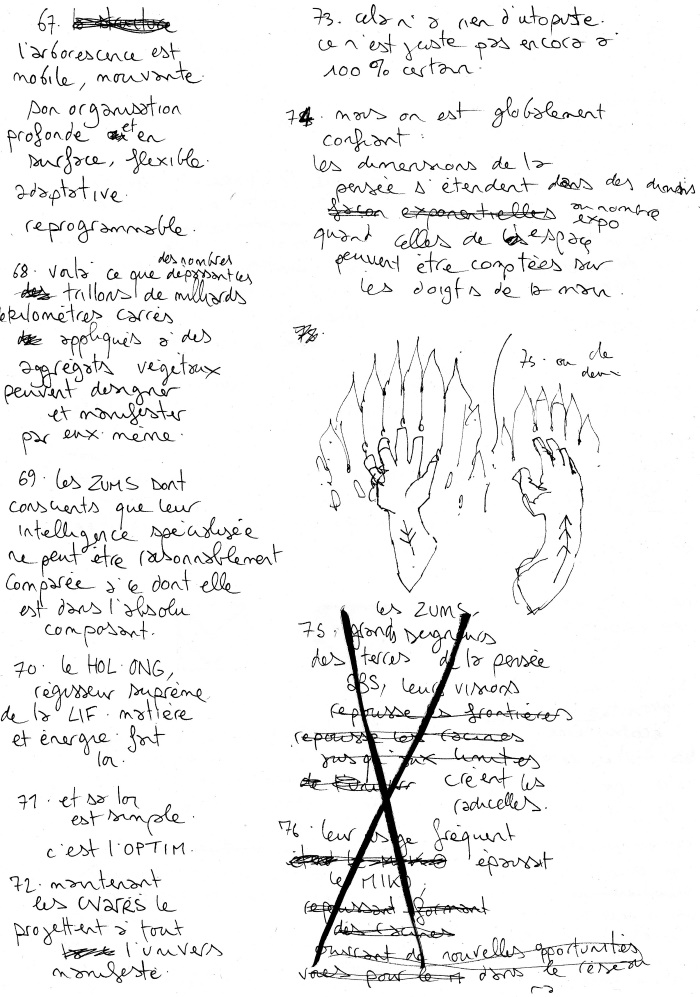 67.
l'arborescence est
mobile, mouvante.
son organisation
profonde et en
surface, flexible.
adaptative.
reprogrammable.
68. voilà ce que des nombres dépassant les
trillons de milliards
kilomètres carrés
appliqués à des
aggrégats végétaux
peuvent désigner
et manifester
par eux-même.
69. les ZUMS sont
conscients que leur
intelligence spécialisée
ne peut être raisonnablement
comparée à ce dont elle
est dans l'absolu
composant.
70. le HOL.ONG,
régisseur suprême
de la LIF. matière
et énergie font
loi.
71. et sa loi
est simple.
c'est l'OPTIM.
72. maintenant
les CVARÉS le
projettent à tout
l'univers
manifesté.
73. cela n'a rien d'utopiste.
ce n'est juste pas encore à
100 % certain.
74. mais on est globalement
confiant :
les dimensions de la
pensée s'étendent dans des
façon exponentielles au nombre
expo
quand celles de l'espace
peuvent être comptées sur
les doigts de la main.
75. ou de
deux
les ZUMS
75. grands seigneurs
des terres de la pensée
leurs visions
repousse les frontières
repousse les racines
jusqu'aux limites
créent les
radicelles.
76. leur usage fréquent
épaissit
le MIKO,
repoussant formant
des racines
ouvrant de nouvelles opportunités
voies pour le dans le réseau